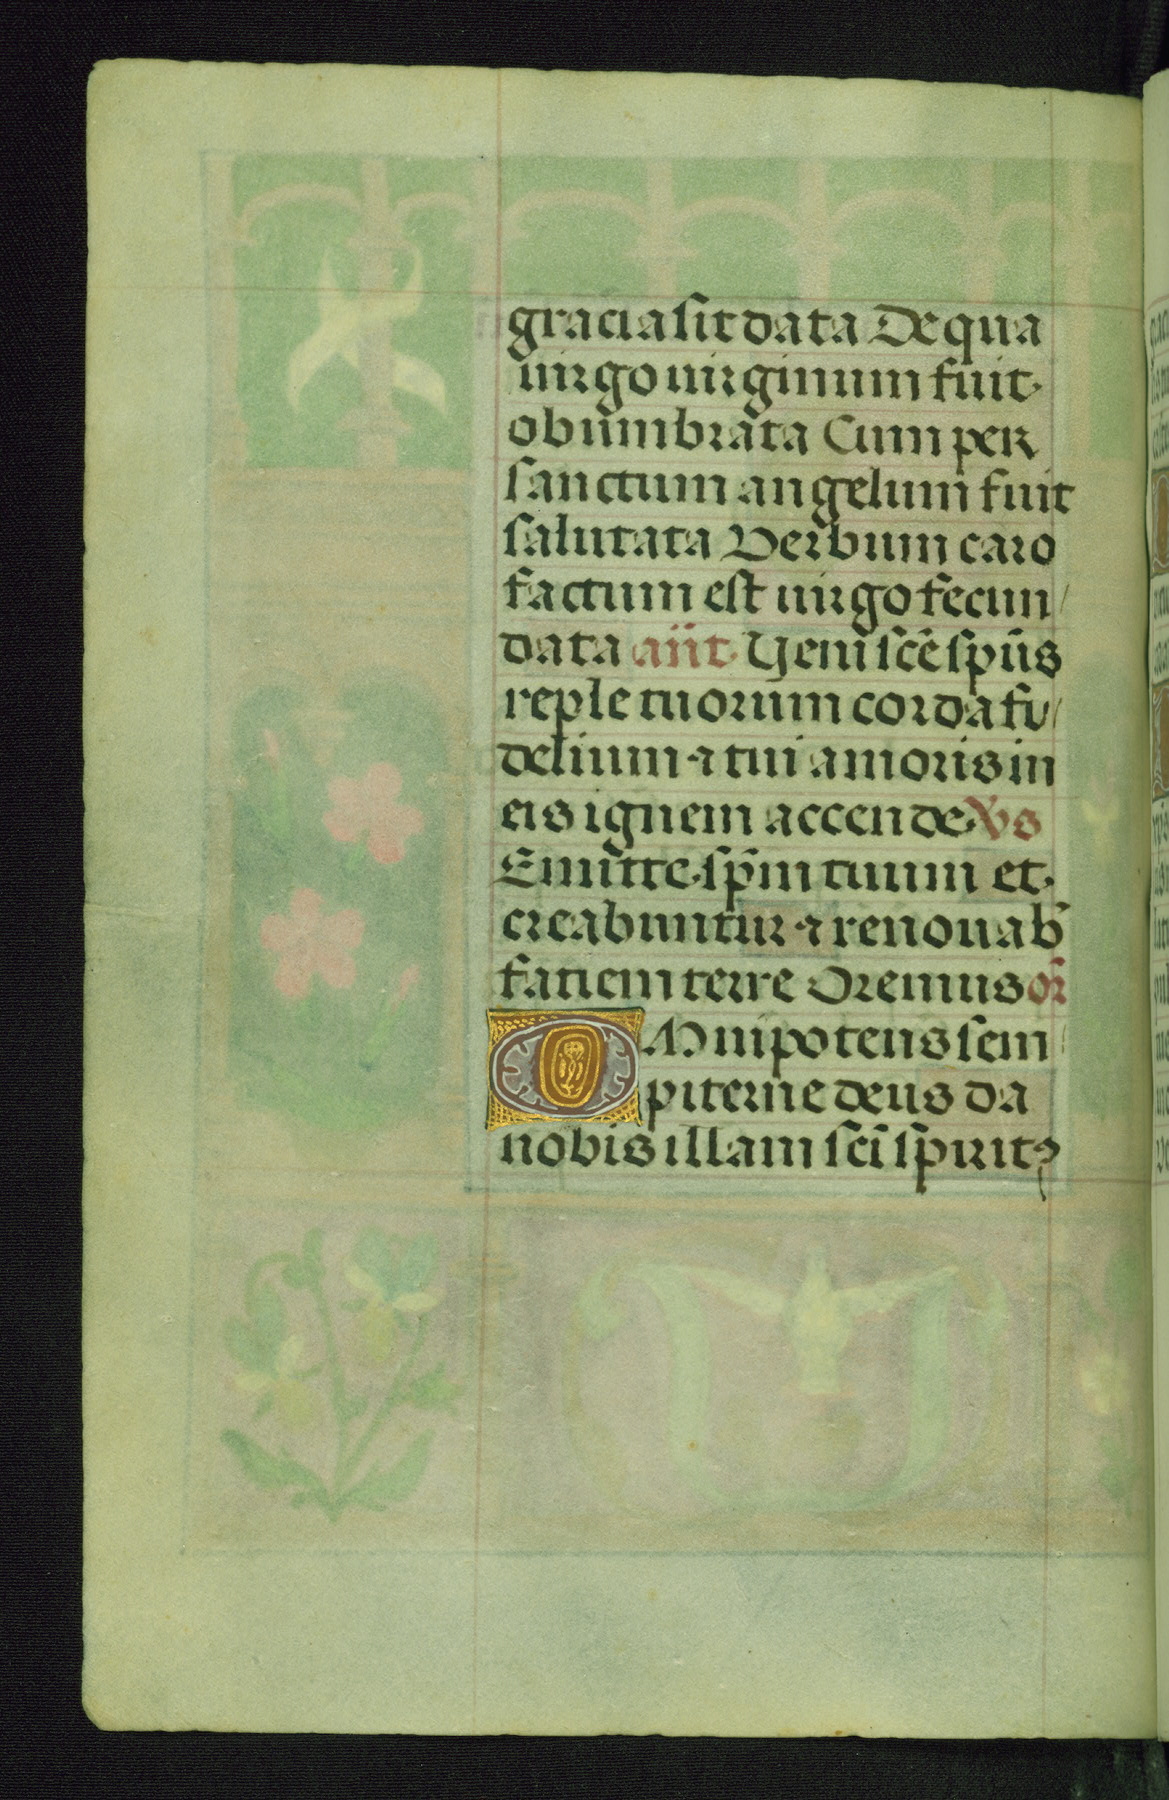 gracia sit data De qua
uirgo uirginum fuit
obumbrata Cum per
sanctum angelum fuit
salutata Verbum caro
factum est uirgo fecun/
data añt Veni scẽ spũs
reple tuorum corda fi/
delium ⁊ tui amoris in
eis ignem accende Vs
Emitte spm̃ tuum et
creabuntur ⁊ renouab̃
faciem terre Oremus or̃
OMnipotens sem/
piterne deus da
nobis illam sci spirit⁹